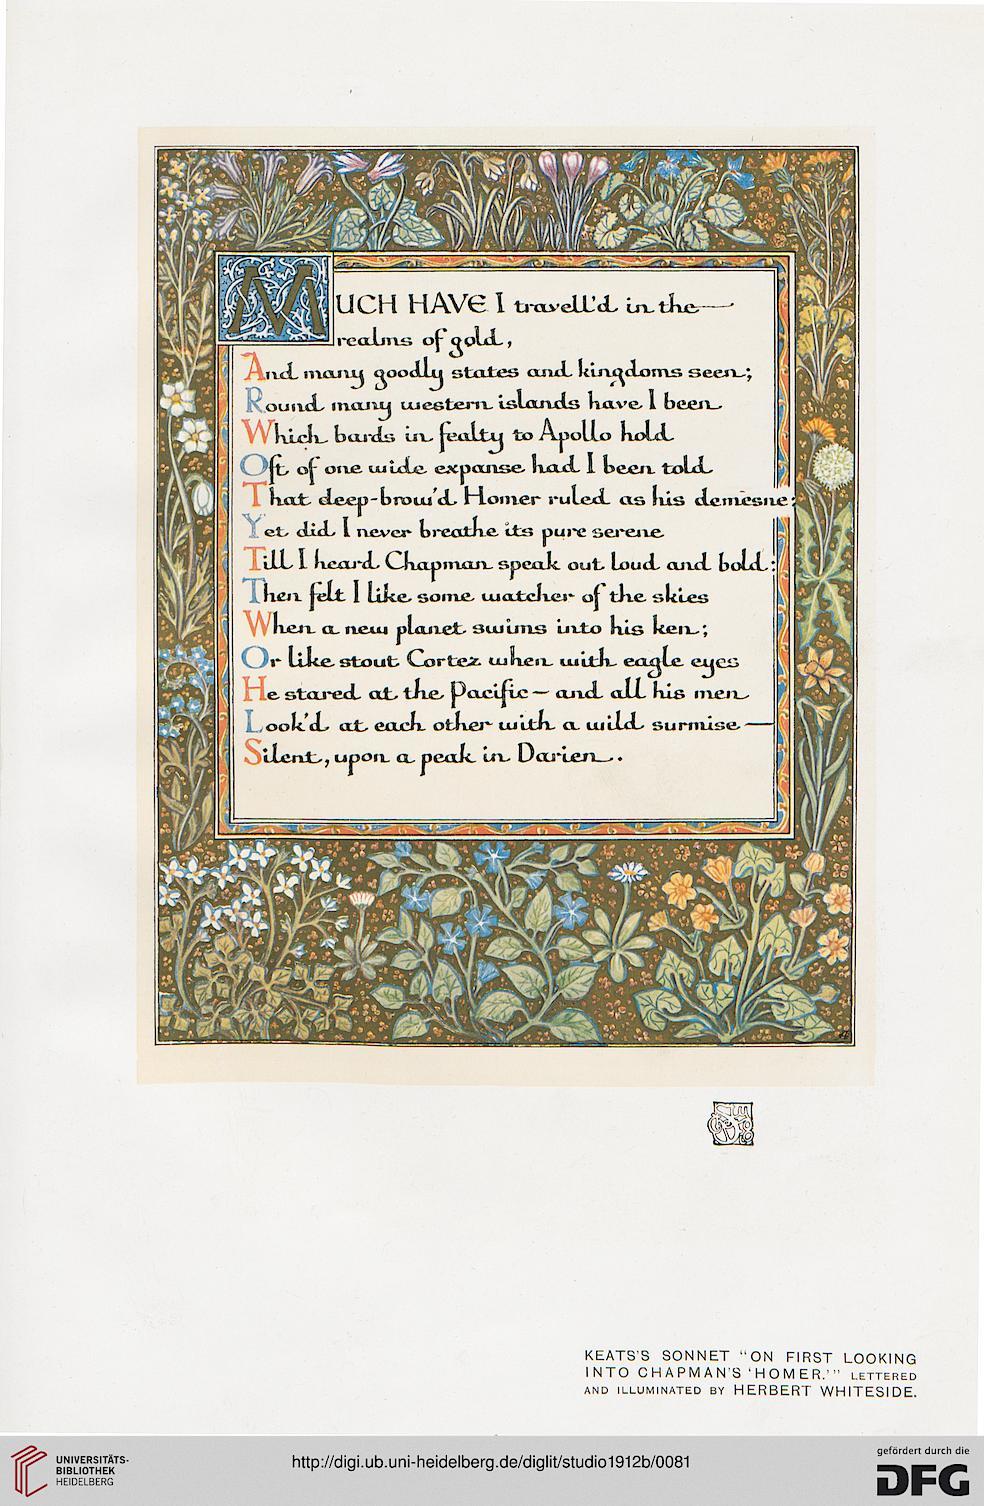 MUCH HAVE I travell'd in the
realms of gold,
And many goodly states and kingdoms seen;
Round many western islands have I been
Which bards in fealty to Apollo hold
Oft of one wide expanse had I been told
That deep-brow'd Homer ruled as his demesne:
Yet did I never breathe its pure serene
Till I heard Chapman speak out loud and bold:
Then felt I like some watcher of the skies
When a new planet swims into his ken;
Or like stout Cortez when with eagle eyes
He stared at the Pacific — and all his men
Look'd at each other with a wild surmise —
Silent, upon a peak in Darien.
KEATS'S SONNET "ON FIRST LOOKING
INTO CHAPMAN'S 'HOMER.'" LETTERED
AND ILLUMINATED BY HERBERT WHITESIDE.
UNIVERSITÄTS-
BIBLIOTHEK
HEIDELBERG
http://digi.ub.uni-heidelberg.de/diglit/studio1912b/0081
gefördert durch die
DFG